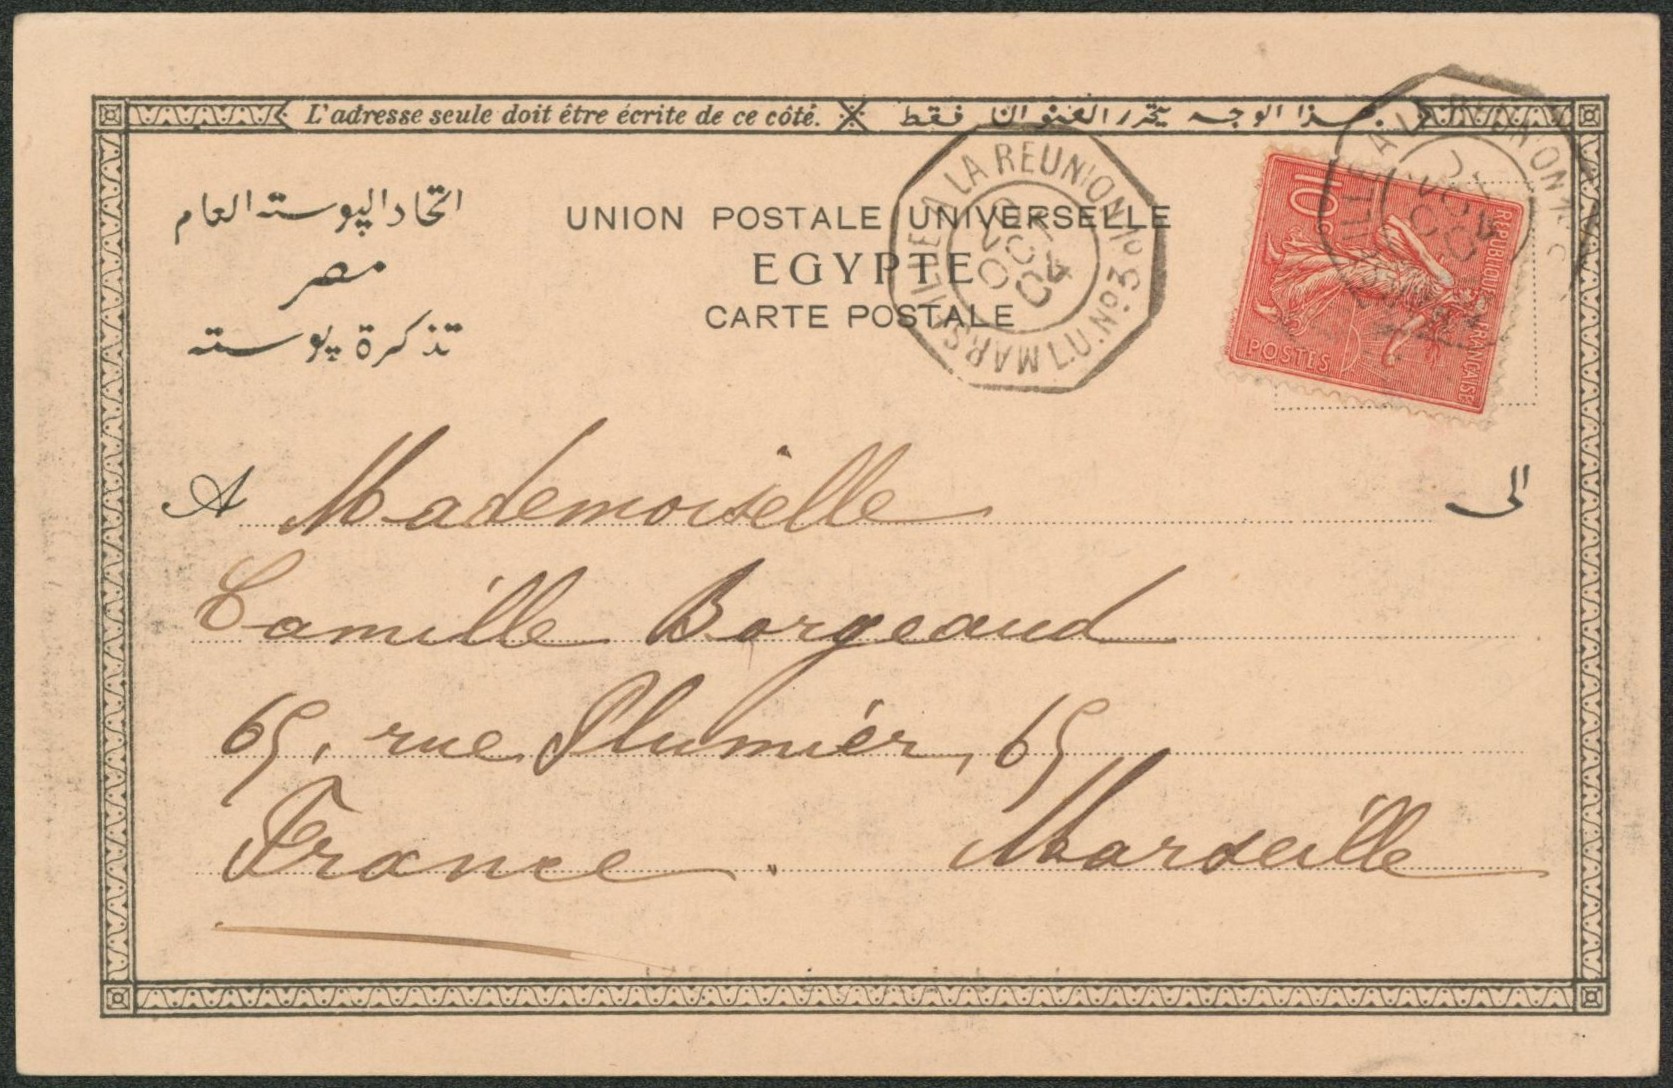 L'adresse seule doit être écrite de ce côté. هذا الوجه يحترر العنوان فقط
اتحاد البوسته العام
مصر
تذكرة بوسته
UNION POSTALE UNIVERSELLE
EGYPTE
CARTE POSTALE
LA REUNION L.U. Nº3
OCT
04
10c
REPUBLIQUE FRANÇAISE
POSTES
A Mademoiselle الى
Camille Borgeaud
65, rue Plumier, 65
France. Marseille